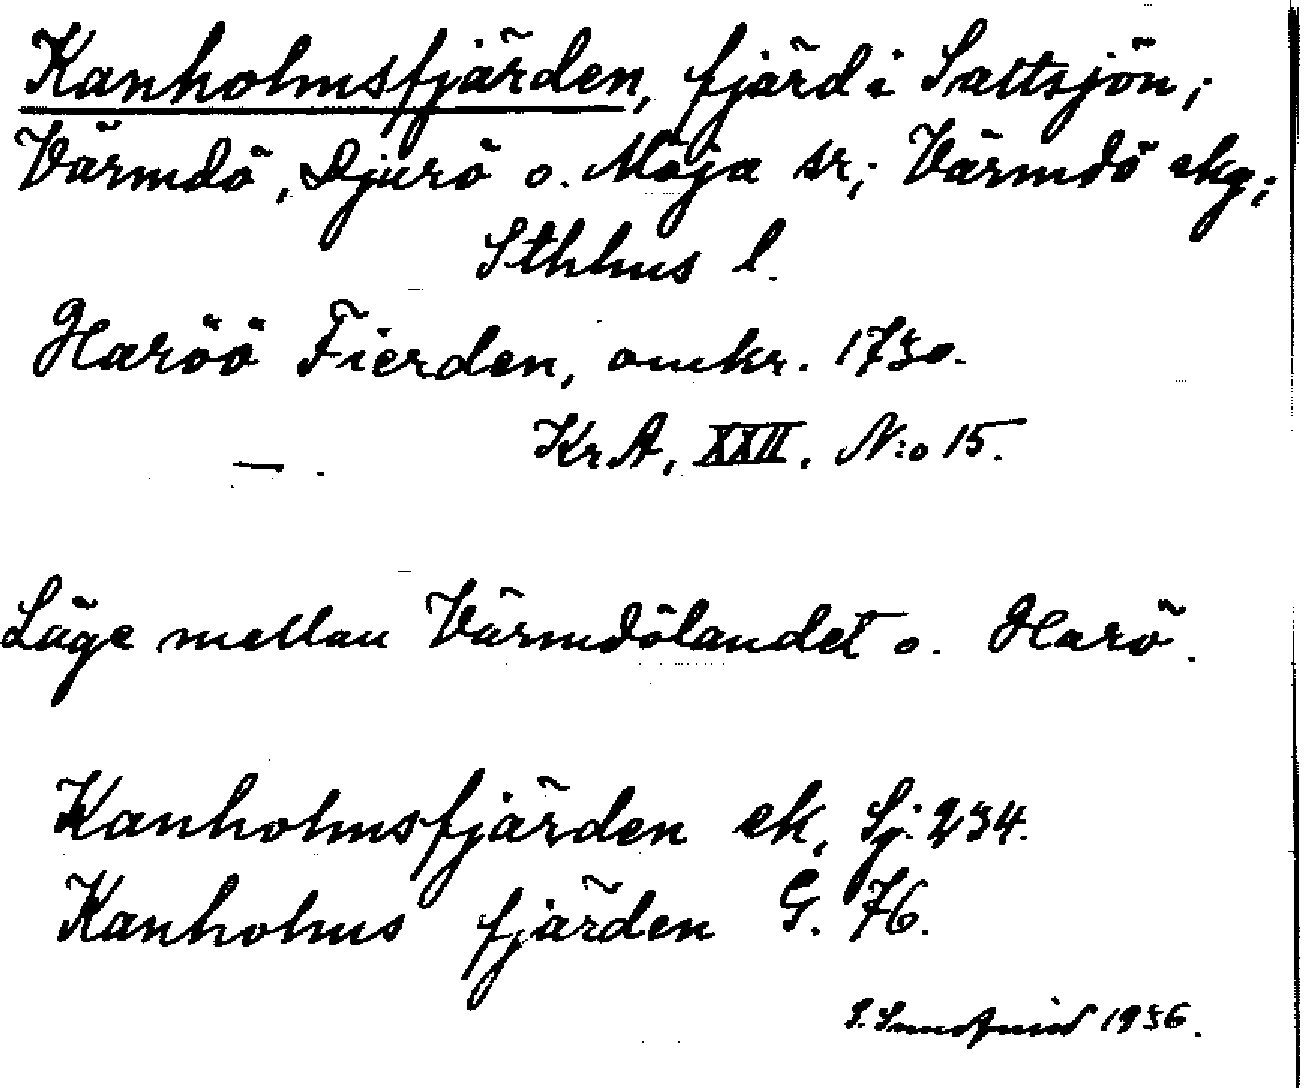 Kanholmsfjärden, fjärd i Saltsjön;
Värmdö, Djurö o. Möja sr; Värmdö skg;
Sthlms l.
Haröö Fierden, omkr. 1730.
— . KrA, XXII, N:o 15.
Läge mellan Värmdölandet o. Harö.
Kanholmsfjärden ek, Sj: 234.
Kanholms fjärden G. 76.
1936.